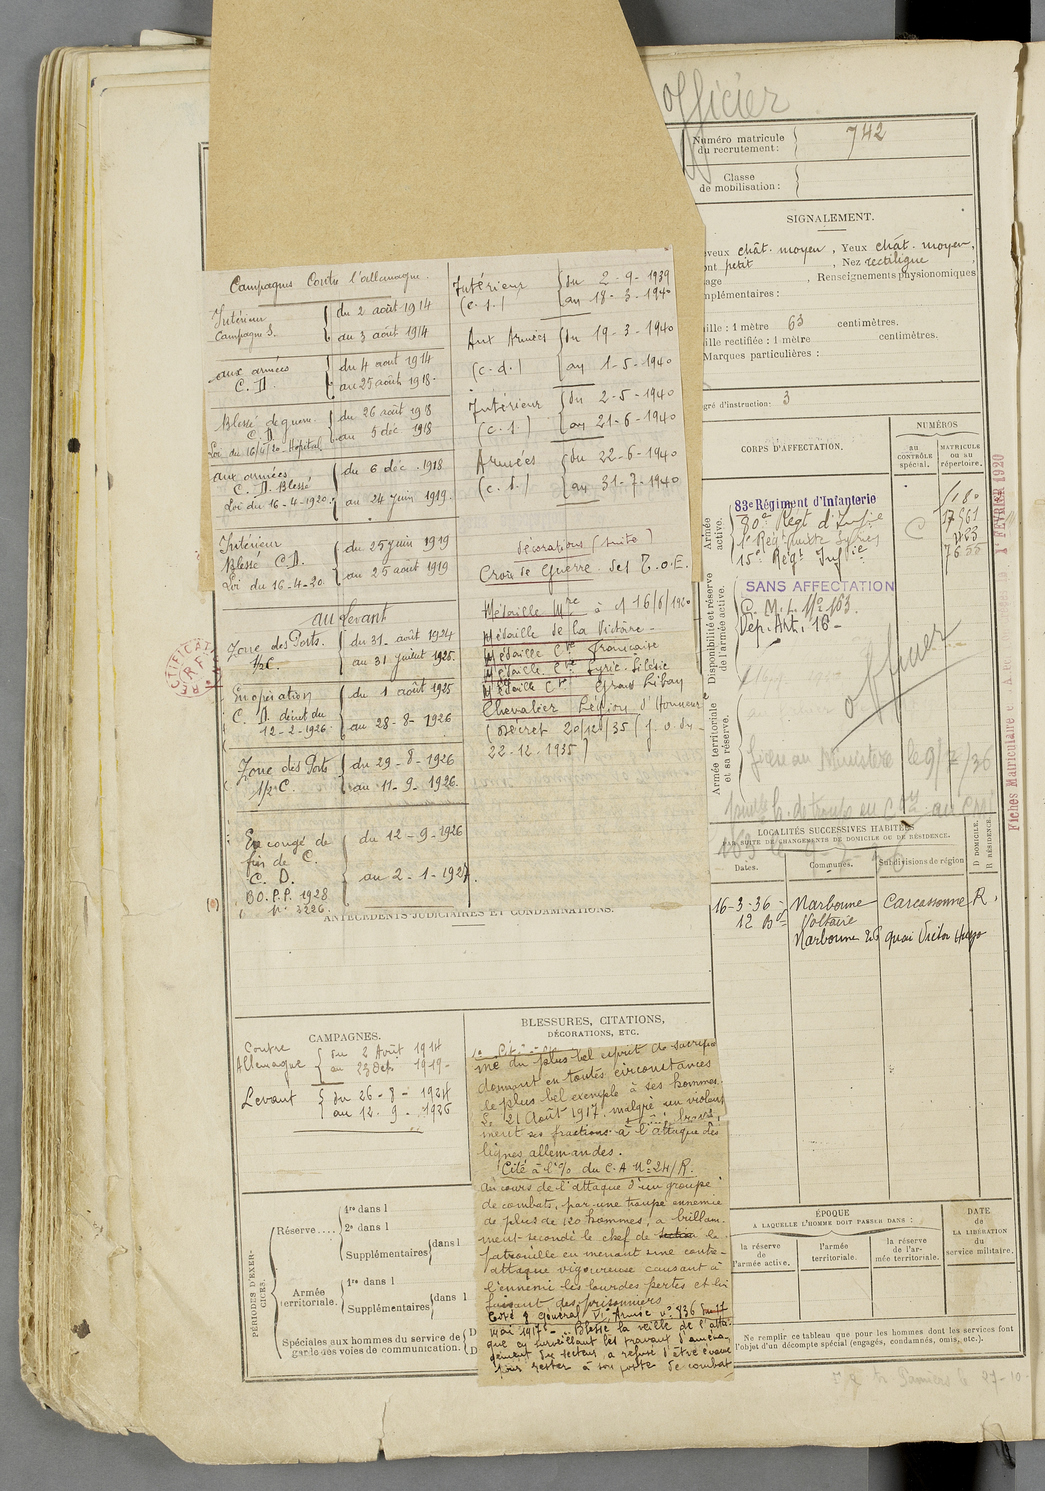 officier
Numéro matricule
du recrutement :
742
Classe
de mobilisation :
SIGNALEMENT.
veux chât. moyen, Yeux chât. moyen,
ont petit, Nez rectiligne
age, Renseignements physionomiques
mplémentaires :
ille : 1 mètre 63 centimètres.
ille rectifiée : 1 mètre centimètres.
Marques particulières :
gré d'instruction : 3
CORPS D'AFFECTATION.
NUMÉROS
au
CONTRÔLE
spécial.
MATRICULE
ou au
répertoire.
Armée
active.
83e Régiment d'Infanterie
80e Régt d'Infie
15e Régt Infie
C
Disponibilité et réserve
de l'armée active.
SANS AFFECTATION
C. M. I. No 163.
Dép. Art. 16
officier
Armée territoriale
et sa réserve.
au Ministère le 9/7/36
1er FÉVRIER 1920
Fiches Matriculaire
LOCALITÉS SUCCESSIVES HABITÉES
PAR SUITE DE CHANGEMENTS DE DOMICILE OU DE RÉSIDENCE.
D DOMICILE,
R RÉSIDENCE.
Dates.
Communes.
Subdivisions de région
16-3-36 Narbonne Carcassonne R.
12 Bd Voltaire
Narbonne 26 quai Victor Hugo
Campagnes Contre l'allemagne.
Intérieur
Campagne S.
du 2 août 1914
au 3 août 1914
aux armées
C. D.
du 4 aout 1914
au 25 août 1918.
Blessé de guerre
C. D.
Loi du 16/4/20 - Hôpital
du 26 août 1918
au 5 déc 1918
aux armées
C. D. Blessé
Loi du 16-4-1920.
du 6 déc. 1918.
au 24 juin 1919.
Intérieur
Blessé C. D.
Loi du 16-4-20.
du 25 juin 1919
au 25 août 1919
au Levant
Zone des Ports.
1/2 C
du 31 août 1924
au 31 juillet 1925.
En opération
C. D. décret du
12-2-1926.
du 1 août 1925
au 28-8-1926
Zone des Ports
1/2 C.
du 29-8-1926
au 11-9-1926.
En congé de
fin de C.
C. D.
BO. P.P. 1928
No 3226.
du 12-9-1926
au 2-1-1927.
Intérieur
(c. s.)
du 2-9-1939
au 18-3-1940
Aux Armées
(c. d.)
du 19-3-1940
au 1-5-1940
Intérieur
(c. s.)
du 2-5-1940
au 21-6-1940
Armées
(c. s.)
du 22-6-1940
au 31-7-1940
décorations (suite)
Croix de Guerre des T. O. E.
Médaille Mre à 16/6/1920
Médaille de la Victoire -
Médaille Cve Française
Médaille Cve Syrie-Cilicie
Médaille Cve Grand Liban
Chevalier Légion d'Honneur
(Décret 20/12/35 (J. O du
22-12-1935)
ANTÉCÉDENTS JUDICIAIRES ET CONDAMNATIONS.
RECTIFICAT
R.F.
CAMPAGNES.
Contre
Allemagne
du 2 Août 1914
au 23 Oct 1919-
Levant
du 26-8-1924
au 12-9-1926
BLESSURES, CITATIONS,
DÉCORATIONS, ETC.
mé du plus bel esprit de sacrifice
donnant en toutes circonstances
le plus bel exemple à ses hommes.
Le 21 Août 1917. malgré un violent
ment ses fractions à l'attaque des
lignes allemandes.
Cité à l'% du C.A No 24/R.
Au cours de l'attaque d'un groupe
de combats, par une troupe ennemie
de plus de 120 hommes, a brillam-
ment secondé le chef de section le
patrouille en menant une contre-
attaque vigoureuse causant à
l'ennemi les lourdes pertes et lui
faisant des prisonniers
Cité O Général VIe Armée no 736
mai 1917 - Blessé la veille de l'atta-
que en surveillant les travaux d'aména-
gement du secteur a refusé d'être évacué
pour rester à son poste de combat
PÉRIODES D'EXER-
CICES.
Réserve....
1re dans l
2e dans l
Supplémentaires dans l
Armée
territoriale.
1re dans l
Supplémentaires dans l
Spéciales aux hommes du service de
garde des voies de communication.
ÉPOQUE
À LAQUELLE L'HOMME DOIT PASSER DANS :
la réserve
de
l'armée active.
l'armée
territoriale.
la réserve
de l'ar-
mée territoriale.
DATE
de
LA LIBÉRATION
du
service militaire.
Ne remplir ce tableau que pour les hommes dont les services font
l'objet d'un décompte spécial (engagés, condamnés, omis, etc.).
Pamiers le 27-10-